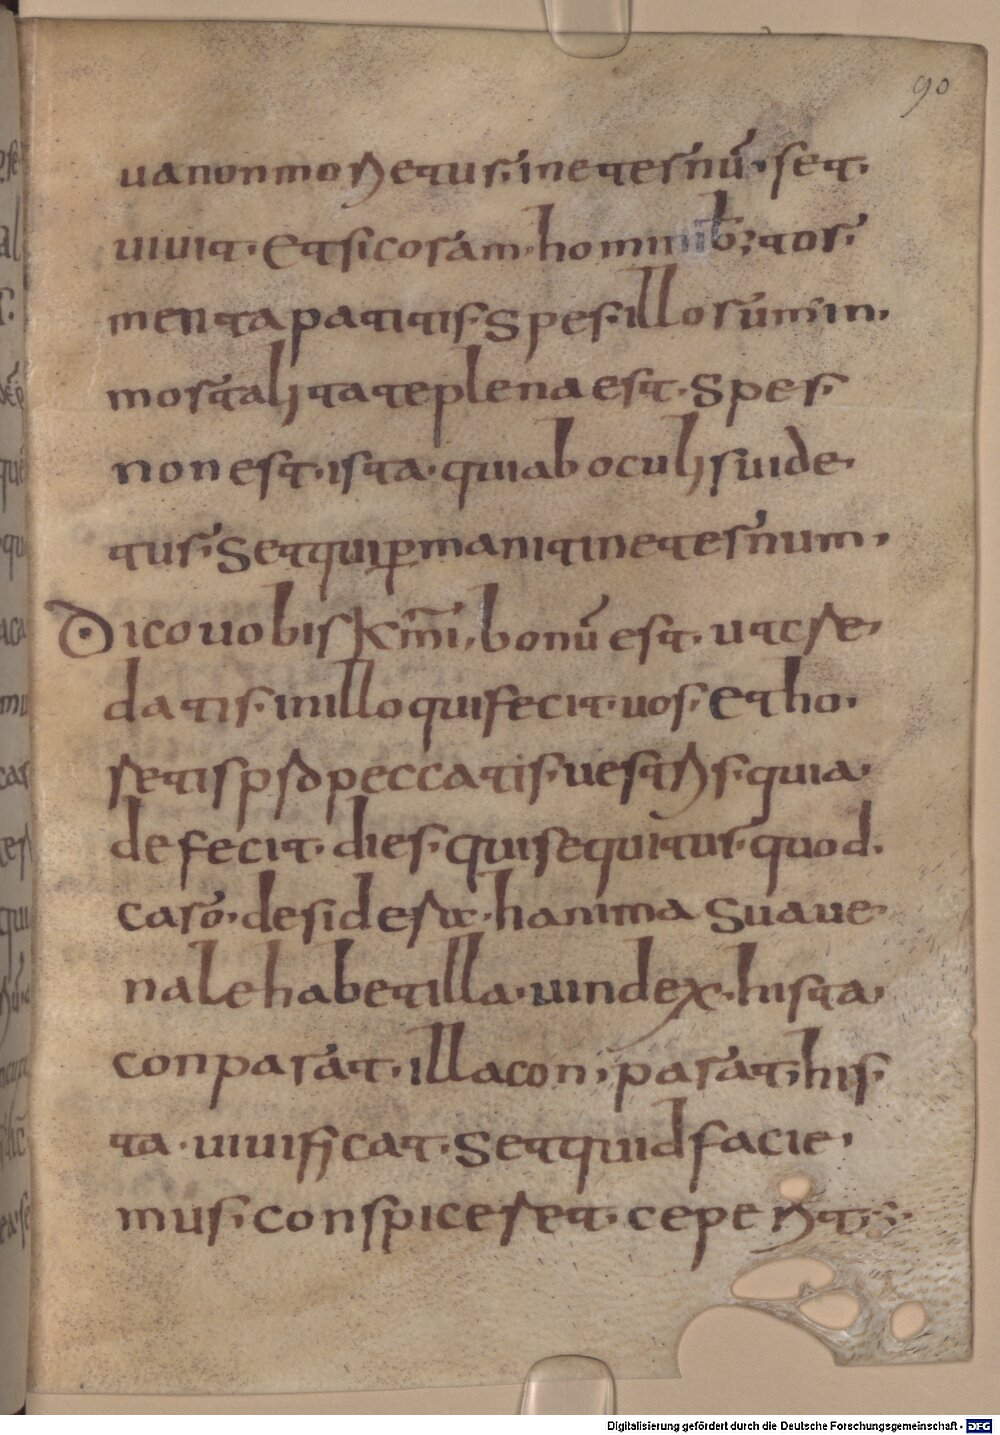 90
uanonmorietur. ineternū. set.
uiuit. Et si coram. hominib; tor
menta patitis. Spes. illorum. in.
mortalitate plena est. Spes.
non est. ista. quiab oculis uide.
tur. Set qui ꝑmanit in eternum.
Dico uobis km̄i. bonū est. ut cre.
datis. in illo qui fecit. uos. Et ho.
retis pro peccatis. uestris. quia.
defecit. dies. qui sequitur. quod.
caro. desiderat. hanima Suaue.
nale habet illa. uindex. hista.
conparat. illa con. parat. his
ta. uiuificat. Set quid facie.
mus. conspiceret. ceperit.
Digitalisierung gefördert durch die Deutsche Forschungsgemeinschaft - DFG